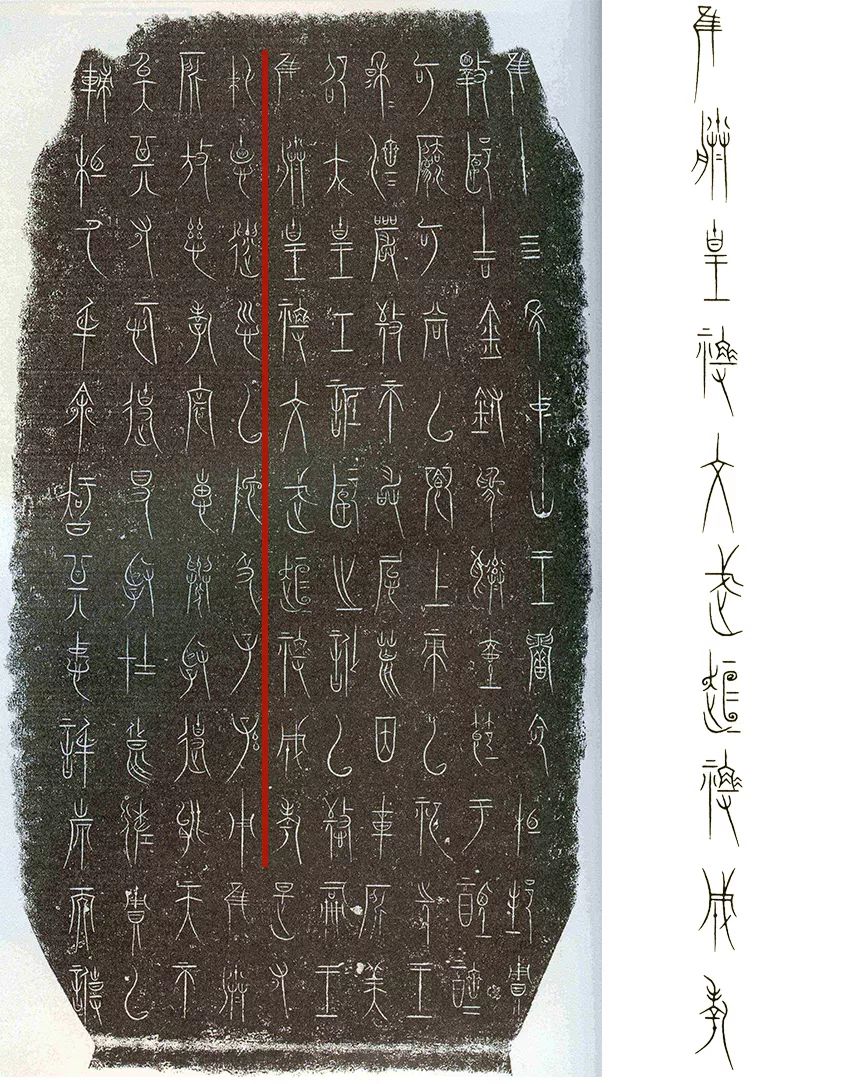 隹十四年中山王厝命相邦賙
擇郾吉金鑄為彝壺節于禋醻
可法可尚以饗上帝以祀先王
穆=濟=嚴敬不敢怠荒因載所美
卲大皇工詆郾之訛以警嗣王
隹朕皇祖文武桓祖成考是又
純德遺訓以陀及子孫用隹朕
所放慈孝宣惠舉賢使能天不
斁其又願使得賢在良佐賙以
輔相氒身余知其忠信也而專
隹朕皇祖文武桓祖成考